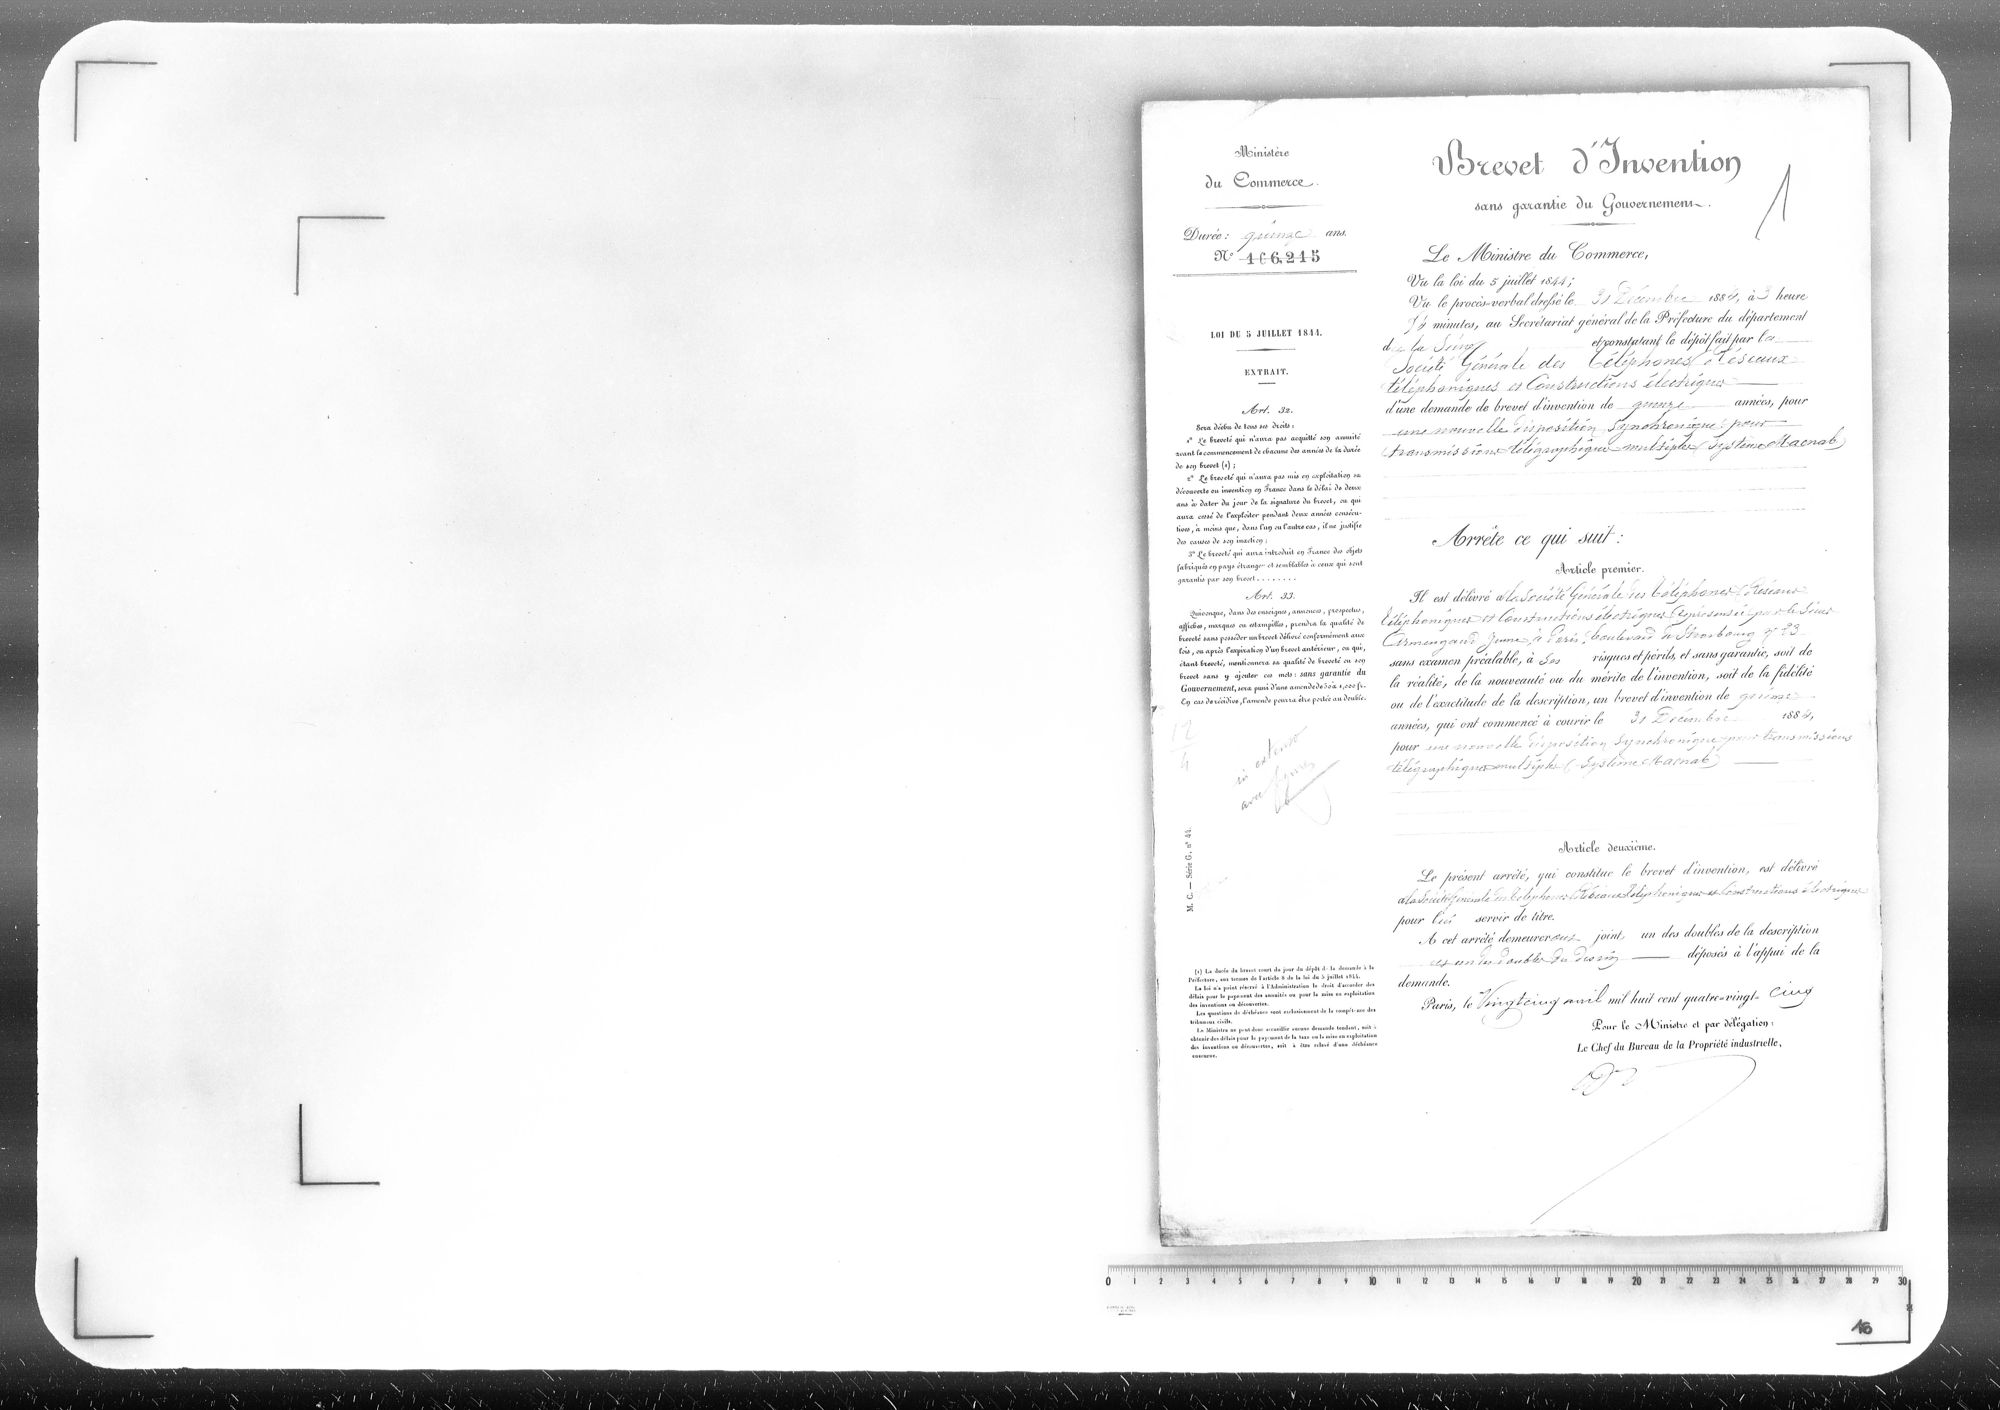 Ministère
du Commerce.
Durée : quinze ans.
N° 166.215
LOI DU 5 JUILLET 1844.
EXTRAIT.
Art. 32.
Sera déchu de tous ses droits :
1° Le breveté qui n'aura pas acquitté son annuité
avant le commencement de chacune des années de la durée
de son brevet (1) ;
2° Le breveté qui n'aura pas mis en exploitation sa
découverte ou invention en France dans le délai de deux
ans à dater du jour de la signature du brevet, ou qui
aura cessé de l'exploiter pendant deux années consécu-
tives, à moins que, dans l'un ou l'autre cas, il ne justifie
des causes de son inaction ;
3° Le breveté qui aura introduit en France des objets
fabriqués en pays étranger et semblables à ceux qui sont
garantis par son brevet........
Art. 33.
Quiconque, dans des enseignes, annonces, prospectus,
affiches, marques ou estampilles, prendra la qualité de
breveté sans posséder un brevet délivré conformément aux
lois, ou après l'expiration d'un brevet antérieur, ou qui,
étant breveté, mentionnera sa qualité de breveté ou son
brevet sans y ajouter ces mots : sans garantie du
Gouvernement, sera puni d'une amende de 50 à 1,000 fr.
En cas de récidive, l'amende pourra être portée au double.
12
4
in extenso
avec figures
M. C. — Série G, n° 44.
(1) La durée du brevet court du jour du dépôt de la demande à la
Préfecture, aux termes de l'article 8 de la loi du 5 juillet 1844.
La loi n'a point réservé à l'Administration le droit d'accorder des
délais pour le payement des annuités ou pour la mise en exploitation
des inventions ou découvertes.
Les questions de déchéance sont exclusivement de la compétence des
tribunaux civils.
Le Ministre ne peut donc accueillir aucune demande tendant, soit à
obtenir des délais pour le payement de la taxe ou la mise en exploitation
des inventions ou découvertes, soit à être relevé d'une déchéance
encourue.
Brevet d'Invention
sans garantie du Gouvernement.
1
Le Ministre du Commerce,
Vu la loi du 5 juillet 1844 ;
Vu le procès-verbal dressé le 31 Décembre 1884, à 3 heure
minutes, au Secrétariat général de la Préfecture du département
de la Seine et constatant le dépôt fait par la
Société Générale des Téléphones (Réseaux
téléphoniques et Constructions électriques)
d'une demande de brevet d'invention de quinze années, pour
une nouvelle disposition synchronique pour
transmissions télégraphiques multiples (système Macnab)
Arrête ce qui suit :
Article premier.
Il est délivré à la Société Générale des Téléphones (Réseaux
téléphoniques et Constructions électriques) représentée par le Sieur
Armengaud Jeune, à Paris, boulevard de Strasbourg n° 23
sans examen préalable, à ses risques et périls, et sans garantie, soit de
la réalité, de la nouveauté ou du mérite de l'invention, soit de la fidélité
ou de l'exactitude de la description, un brevet d'invention de quinze
années, qui ont commencé à courir le 31 Décembre 1884,
pour une nouvelle disposition synchronique pour transmissions
télégraphiques multiples (système Macnab)
Article deuxième.
Le présent arrêté, qui constitue le brevet d'invention, est délivré
à la Société Générale des Téléphones (Réseaux Téléphoniques et Constructions électriques)
pour lui servir de titre.
A cet arrêté demeureront joints un des doubles de la description
et un des doubles du dessin déposés à l'appui de la
demande.
Paris, le Vingt cinq avril mil huit cent quatre-vingt-cinq
Pour le Ministre et par délégation :
Le Chef du Bureau de la Propriété industrielle,
0 1 2 3 4 5 6 7 8 9 10 11 12 13 14 15 16 17 18 19 20 21 22 23 24 25 26 27 28 29 30
16